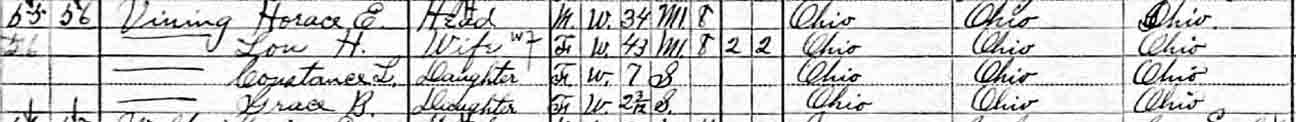 55 56 Vining Horace E. Head M. W. 34 M. 8 Ohio Ohio Ohio
56 Lou H. Wife F W. 43 M 8 2 2 Ohio Ohio Ohio
Constance L. Daughter F W. 7 S Ohio Ohio Ohio
Grace B. Daughter F W. 2 S. Ohio Ohio Ohio